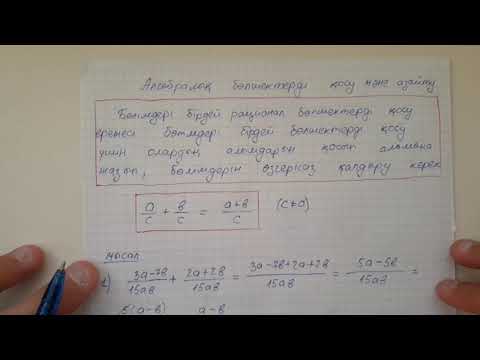 Алгебралық бөлшектерді қосу және азайту
Бөлімдері бірдей рационал бөлшектерді қосу
ережесі бөлімдері бірдей бөлшектерді қосу
үшін олардың алымдарын қосып алымына
жазып, бөлімдерін өзгеріссіз қалдыру керек
a/c + в/c = a+в/c (c≠0)
мысал
1) 3a-7в/15aв + 2a+2в/15aв = 3a-7в+2a+2в/15aв = 5a-5в/15aв =
5(a-в) a-в